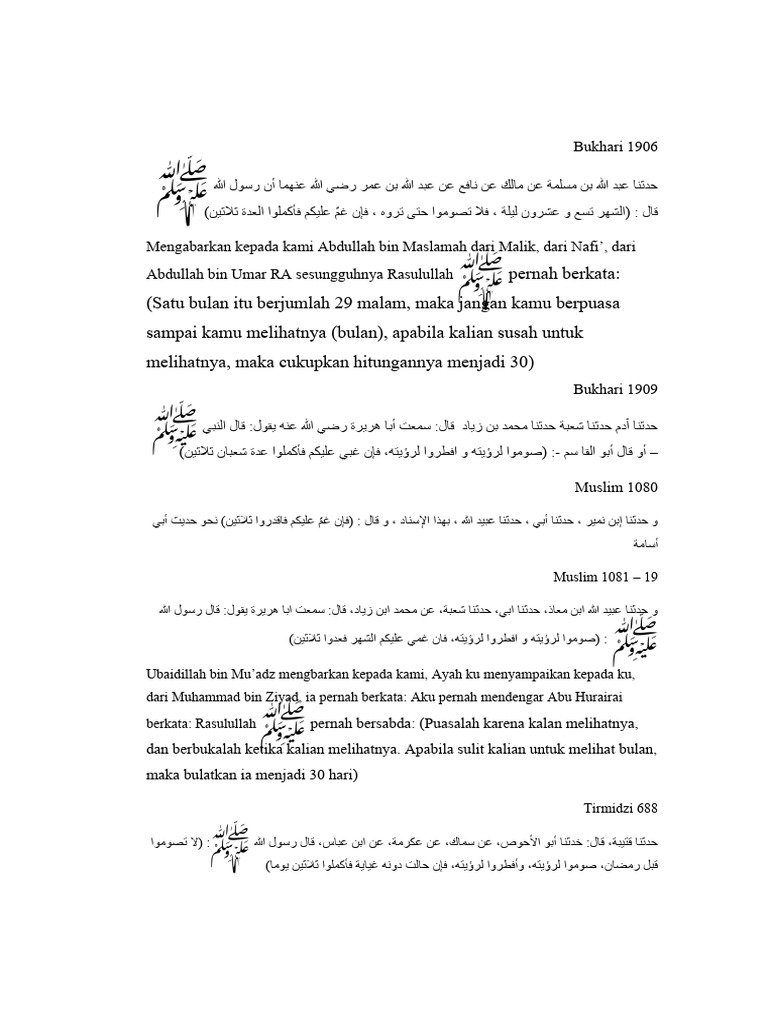 Bukhari 1906
حدثنا عبد الله بن مسلمة عن مالك عن نافع عن عبد الله بن عمر رضي الله عنهما أن رسول الله صَلَّىٰ اللَّٰهُ عَلَيْهِ وَسَلَّمَ
قال : (الشهر تسع و عشرون ليلة ، فلا تصوموا حتى تروه ، فإن غمّ عليكم فأكملوا العدة ثلاثين)
Mengabarkan kepada kami Abdullah bin Maslamah dari Malik, dari Nafi’, dari
Abdullah bin Umar RA sesungguhnya Rasulullah صَلَّىٰ اللَّٰهُ عَلَيْهِ وَسَلَّمَ pernah berkata:
(Satu bulan itu berjumlah 29 malam, maka jangan kamu berpuasa
sampai kamu melihatnya (bulan), apabila kalian susah untuk
melihatnya, maka cukupkan hitungannya menjadi 30)
Bukhari 1909
حدثنا آدم حدثنا شعبة حدثنا محمد بن زياد قال: سمعت أبا هريرة رضي الله عنه يقول: قال النبي صَلَّىٰ اللَّٰهُ عَلَيْهِ وَسَلَّمَ
– أو قال أبو القا سم -: (صوموا لرؤيته و افطروا لرؤيته، فإن غبي عليكم فأكملوا عدة شعبان ثلاثين)
Muslim 1080
و حدثنا إبن نمير ، حدثنا أبي ، حدثنا عبيد الله ، بهذا الإسناد ، و قال : (فإن غمّ عليكم فاقدروا ثلاثين) نحو حديث أبي
أسامة
Muslim 1081 – 19
و حدثنا عبيد الله ابن معاذ، حدثنا ابي، حدثنا شعبة، عن محمد ابن زياد، قال: سمعت ابا هريرة يقول: قال رسول الله
صَلَّىٰ اللَّٰهُ عَلَيْهِ وَسَلَّمَ : (صوموا لرؤيته و افطروا لرؤيته، فان غمي عليكم الشهر فعدوا ثلاثين)
Ubaidillah bin Mu’adz mengbarkan kepada kami, Ayah ku menyampaikan kepada ku,
dari Muhammad bin Ziyad, ia pernah berkata: Aku pernah mendengar Abu Hurairai
berkata: Rasulullah صَلَّىٰ اللَّٰهُ عَلَيْهِ وَسَلَّمَ pernah bersabda: (Puasalah karena kalan melihatnya,
dan berbukalah ketika kalian melihatnya. Apabila sulit kalian untuk melihat bulan,
maka bulatkan ia menjadi 30 hari)
Tirmidzi 688
حدثنا قتيبة، قال: خدثنا أبو الأحوص، عن سماك، عن عكرمة، عن ابن عباس، قال رسول الله صَلَّىٰ اللَّٰهُ عَلَيْهِ وَسَلَّمَ : (لا تصوموا
قبل رمضان، صوموا لرؤيته، وأفطروا لرؤيته، فإن حالت دونه غياية فأكملوا ثلاثين يوما)